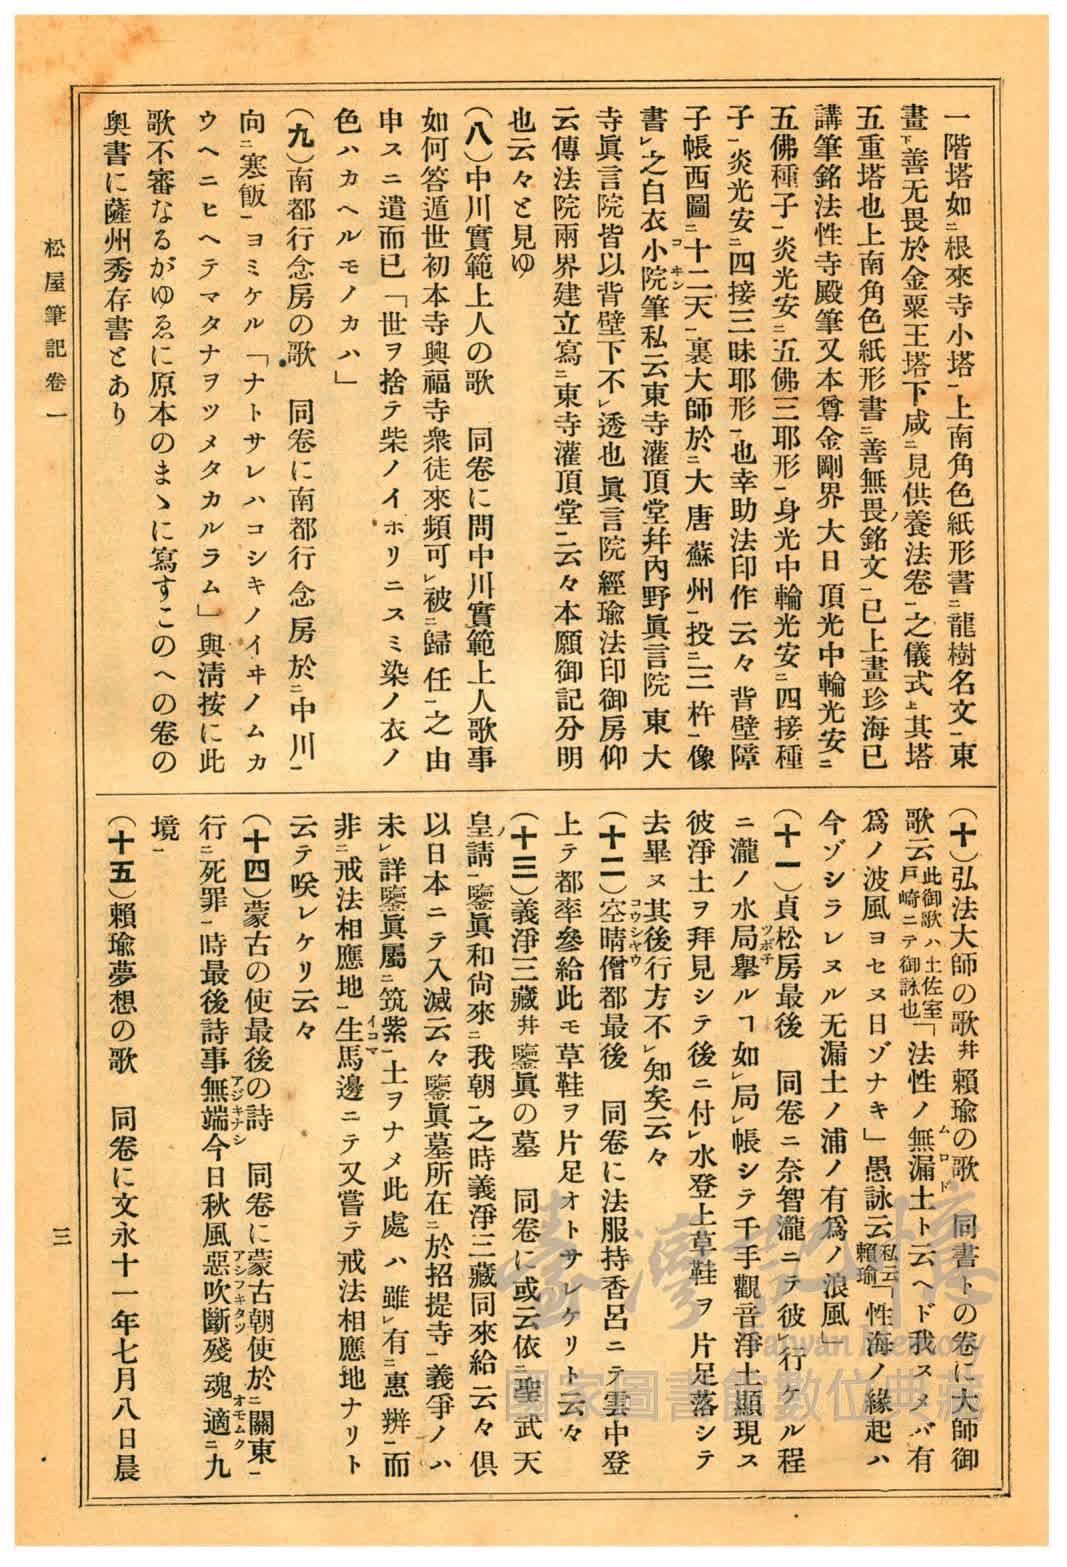 一階塔如ニ根來寺小塔一上南角色紙形書ニ龍樹名文一東
畫下善无畏於金粟王塔下咸ニ見供養法卷一之儀式上其塔
五重塔也上南角色紙形書ニ善無畏ノ銘文一已上畫珍海已
講筆銘法性寺殿筆又本尊金剛界大日頂光中輪光安ニ
五佛種子一炎光安ニ五佛三耶形一身光中輪光安ニ四接種
子一炎光安ニ四接三昧耶形一也幸助法印作云々背壁障
子帳西圖ニ十二天一裏大師於ニ大唐蘇州一投ニ三杵一像
書レ之白衣小院コヰン筆私云東寺灌頂堂幷內野眞言院東大
寺眞言院皆以背壁下不レ透也眞言院經瑜法印御房仰
云傳法院兩界建立寫ニ東寺灌頂堂一云々本願御記分明
也云々と見ゆ
(八)中川實範上人の歌　同卷に問中川實範上人歌事
如何答遁世初本寺興福寺衆徒來頻可レ被ニ歸任一之由
申スニ遣而已「世ヲ捨テ柴ノイホリニスミ染ノ衣ノ
色ハカヘルモノカハ」
(九)南都行念房の歌　同卷に南都行念房於ニ中川一
向ニ寒飯一ヨミケル「ナトサレハコシキノイヰノムカ
ウヘニヒヘテマタナヲツメタカルラム」與淸按に此
歌不審なるがゆゑに原本のまゝに寫すこのへの卷の
奥書に薩州秀存書とあり
(十)弘法大師の歌幷賴瑜の歌　同書トの卷に大師御
歌云此御歌ハ土佐室戶崎ニテ御詠也「法性ノ無漏土ムロドト云ヘド我スメバ有
爲ノ波風ヨセヌ日ゾナキ」愚詠云私云賴瑜「性海ノ緣起ハ
今ゾシラレヌル无漏土ノ浦ノ有爲ノ浪風」
(十一)貞松房最後　同卷ニ奈智瀧ニテ彼レ行ケル程
ニ瀧ノ水局ツボネ擧ルヿ如レ局レ帳シテ千手觀音淨土顯現ス
彼淨土ヲ拜見シテ後ニ付レ水登上草鞋ヲ片足落シテ
去畢ヌ其後行方不レ知矣云々
(十二)空晴コウシヤウ僧都最後　同卷に法服持香呂ニテ雲中登
上テ都率參給此モ草鞋ヲ片足オトサレケリト云々
(十三)義淨三藏幷鑒眞の墓　同卷に或云依ニ聖武天
皇ノ請一鑒眞和尙來ニ我朝一之時義淨三藏同來給云々俱
以日本ニテ入滅云々鑒眞墓所在ニ於招提寺一義爭ノハ
未レ詳鑒眞屬ニ筑紫一土ヲナメ此處ハ雖レ有ニ惠辨一而
非ニ戒法相應地一生馬イコマ邊ニテ又嘗テ戒法相應地ナリト
云テ唉レケリ云々
(十四)蒙古の使最後の詩　同卷に蒙古朝使於ニ關東一
行ニ死罪一時最後詩事無端アジキナシ今日秋風惡吹斷アシフキタツ殘魂適オモムクニ九
境一
(十五)賴瑜夢想の歌　同卷に文永十一年七月八日晨
松屋筆記卷一
三
臺灣記憶
Taiwan Memory
國家圖書館數位典藏